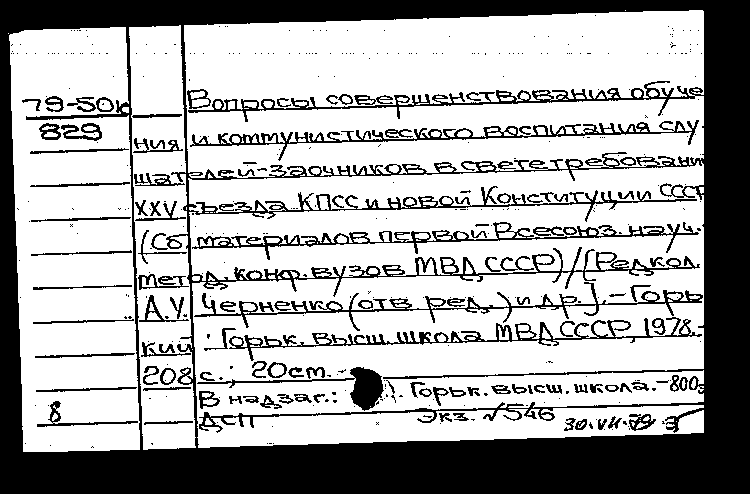 79-50к Вопросы совершенствования обуче
829 ния и коммунистического воспитания слу-
шателей-заочников в свете требований
XXV съезда КПСС и новой Конституции СССР
(Сб. материалов первой Всесоюз. науч.-
метод. конф. вузов МВД СССР)/[Редкол.
А.У. Черненко (отв. ред.) и др.]. - Горь
кий : Горьк. высш. школа МВД СССР, 1978.-
208 с.; 20 cm. -
В надзаг.: Горьк. высш. школа. - 800э
8 ДСП Экз. √546 30.VII.79